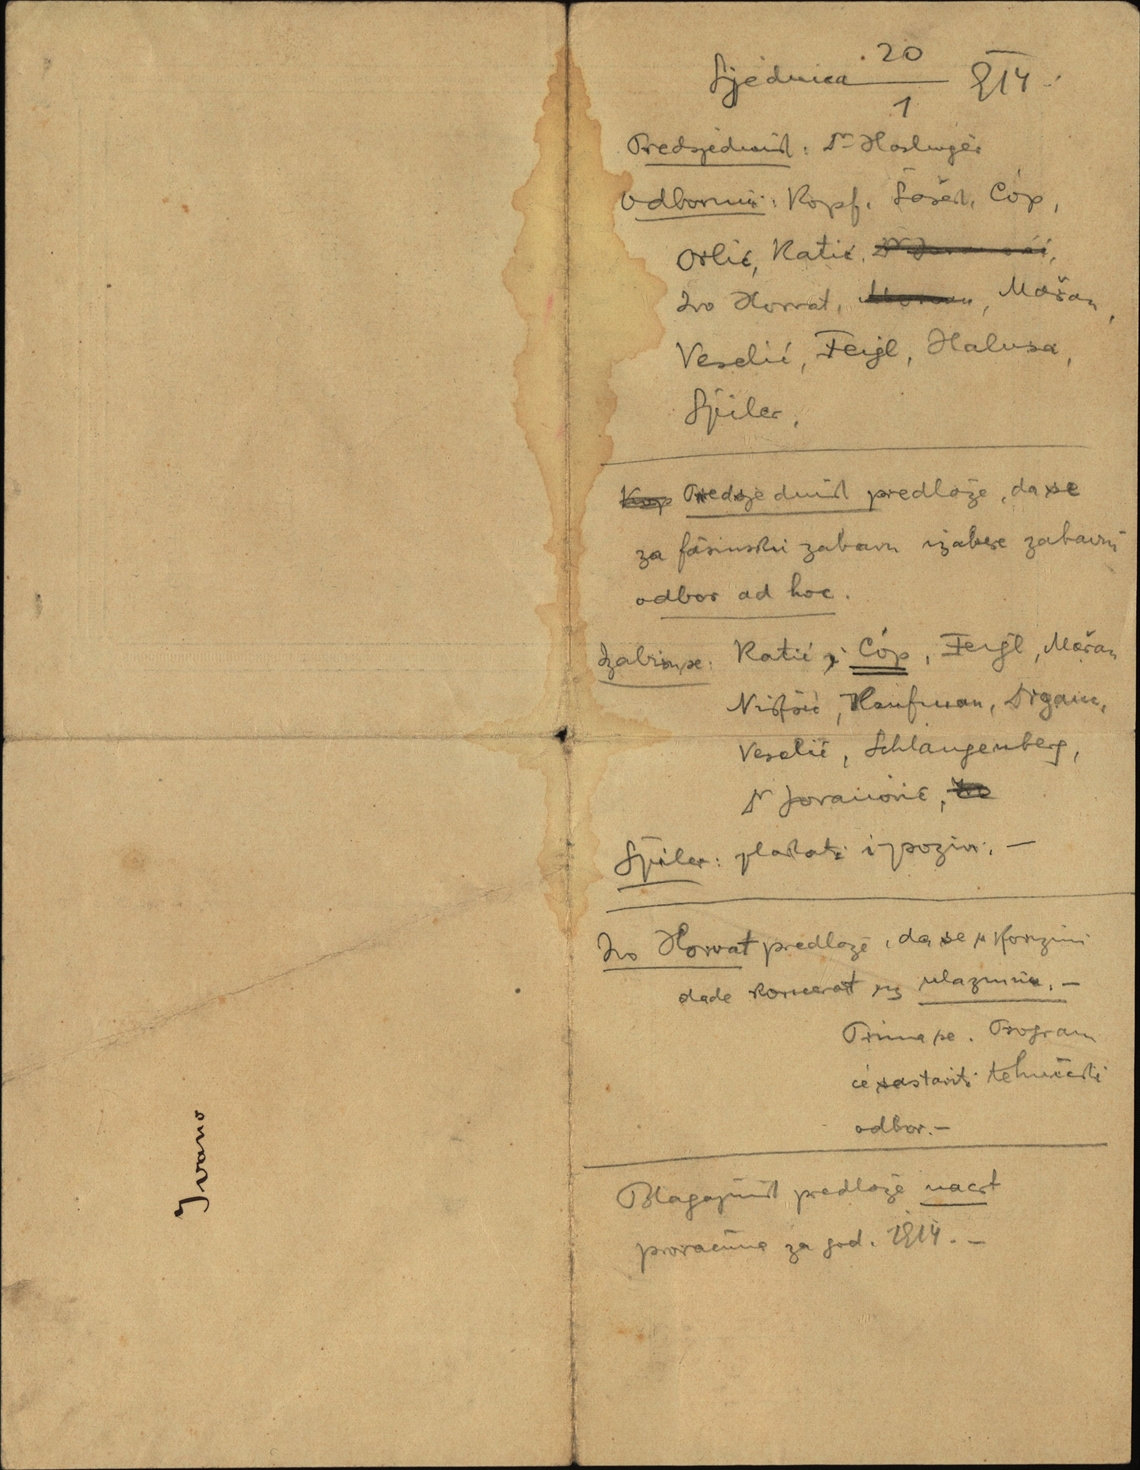 Sjednica 20/1 914.
Predsjednik: Dr Haslinger
Odbornici: Kopf, Cóp,
Orlić, Katić,
Ivo Horvat, Mařan,
Veselić, Feigl, Halusa,
Špiler,
Predsjednik predlaže, da se
za fašinsku zabavu izabere zabavni
odbor ad hoc.
Izabiru se: Katić, Cóp, Feigl, Mařan
Kaufman, Drganc,
Veselić, Schlangenberg,
Dr Jovanović,
Špiler: plakati i pozivi. —
Ivo Horvat predlaže, da se u korizmi
dade koncerat uz ulaznine. —
Prima se. Program
će sastaviti tehnički
odbor. —
Blagajnik predlaže nacrt
proračuna za god. 1914. —
Ivano